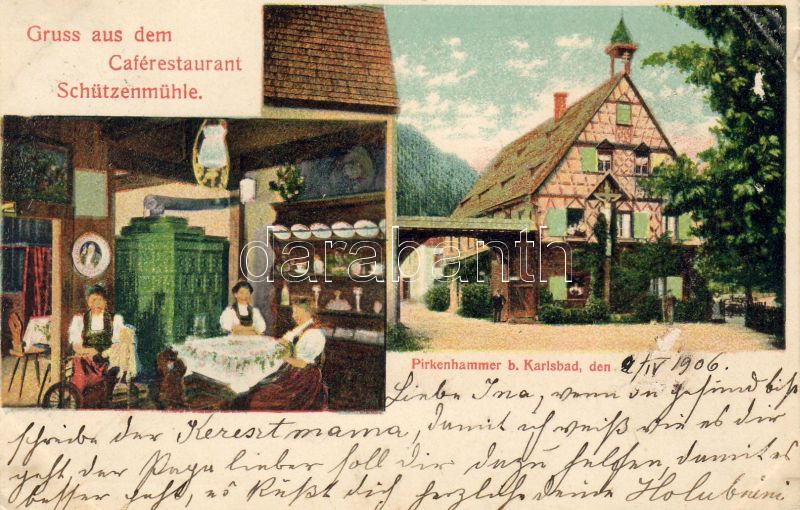 Gruss aus dem
Caférestaurant
Schützenmühle.
darabanth
Pirkenhammer b. Karlsbad, den 9/IV 1906.
Liebe Ina, wenn du gesund bist
schreibe der Keresztmama, damit ich weiß wie es dir
geht, der Papa lieber soll dir dazu helfen, damit es
besser geht, es küßt dich herzlich deine